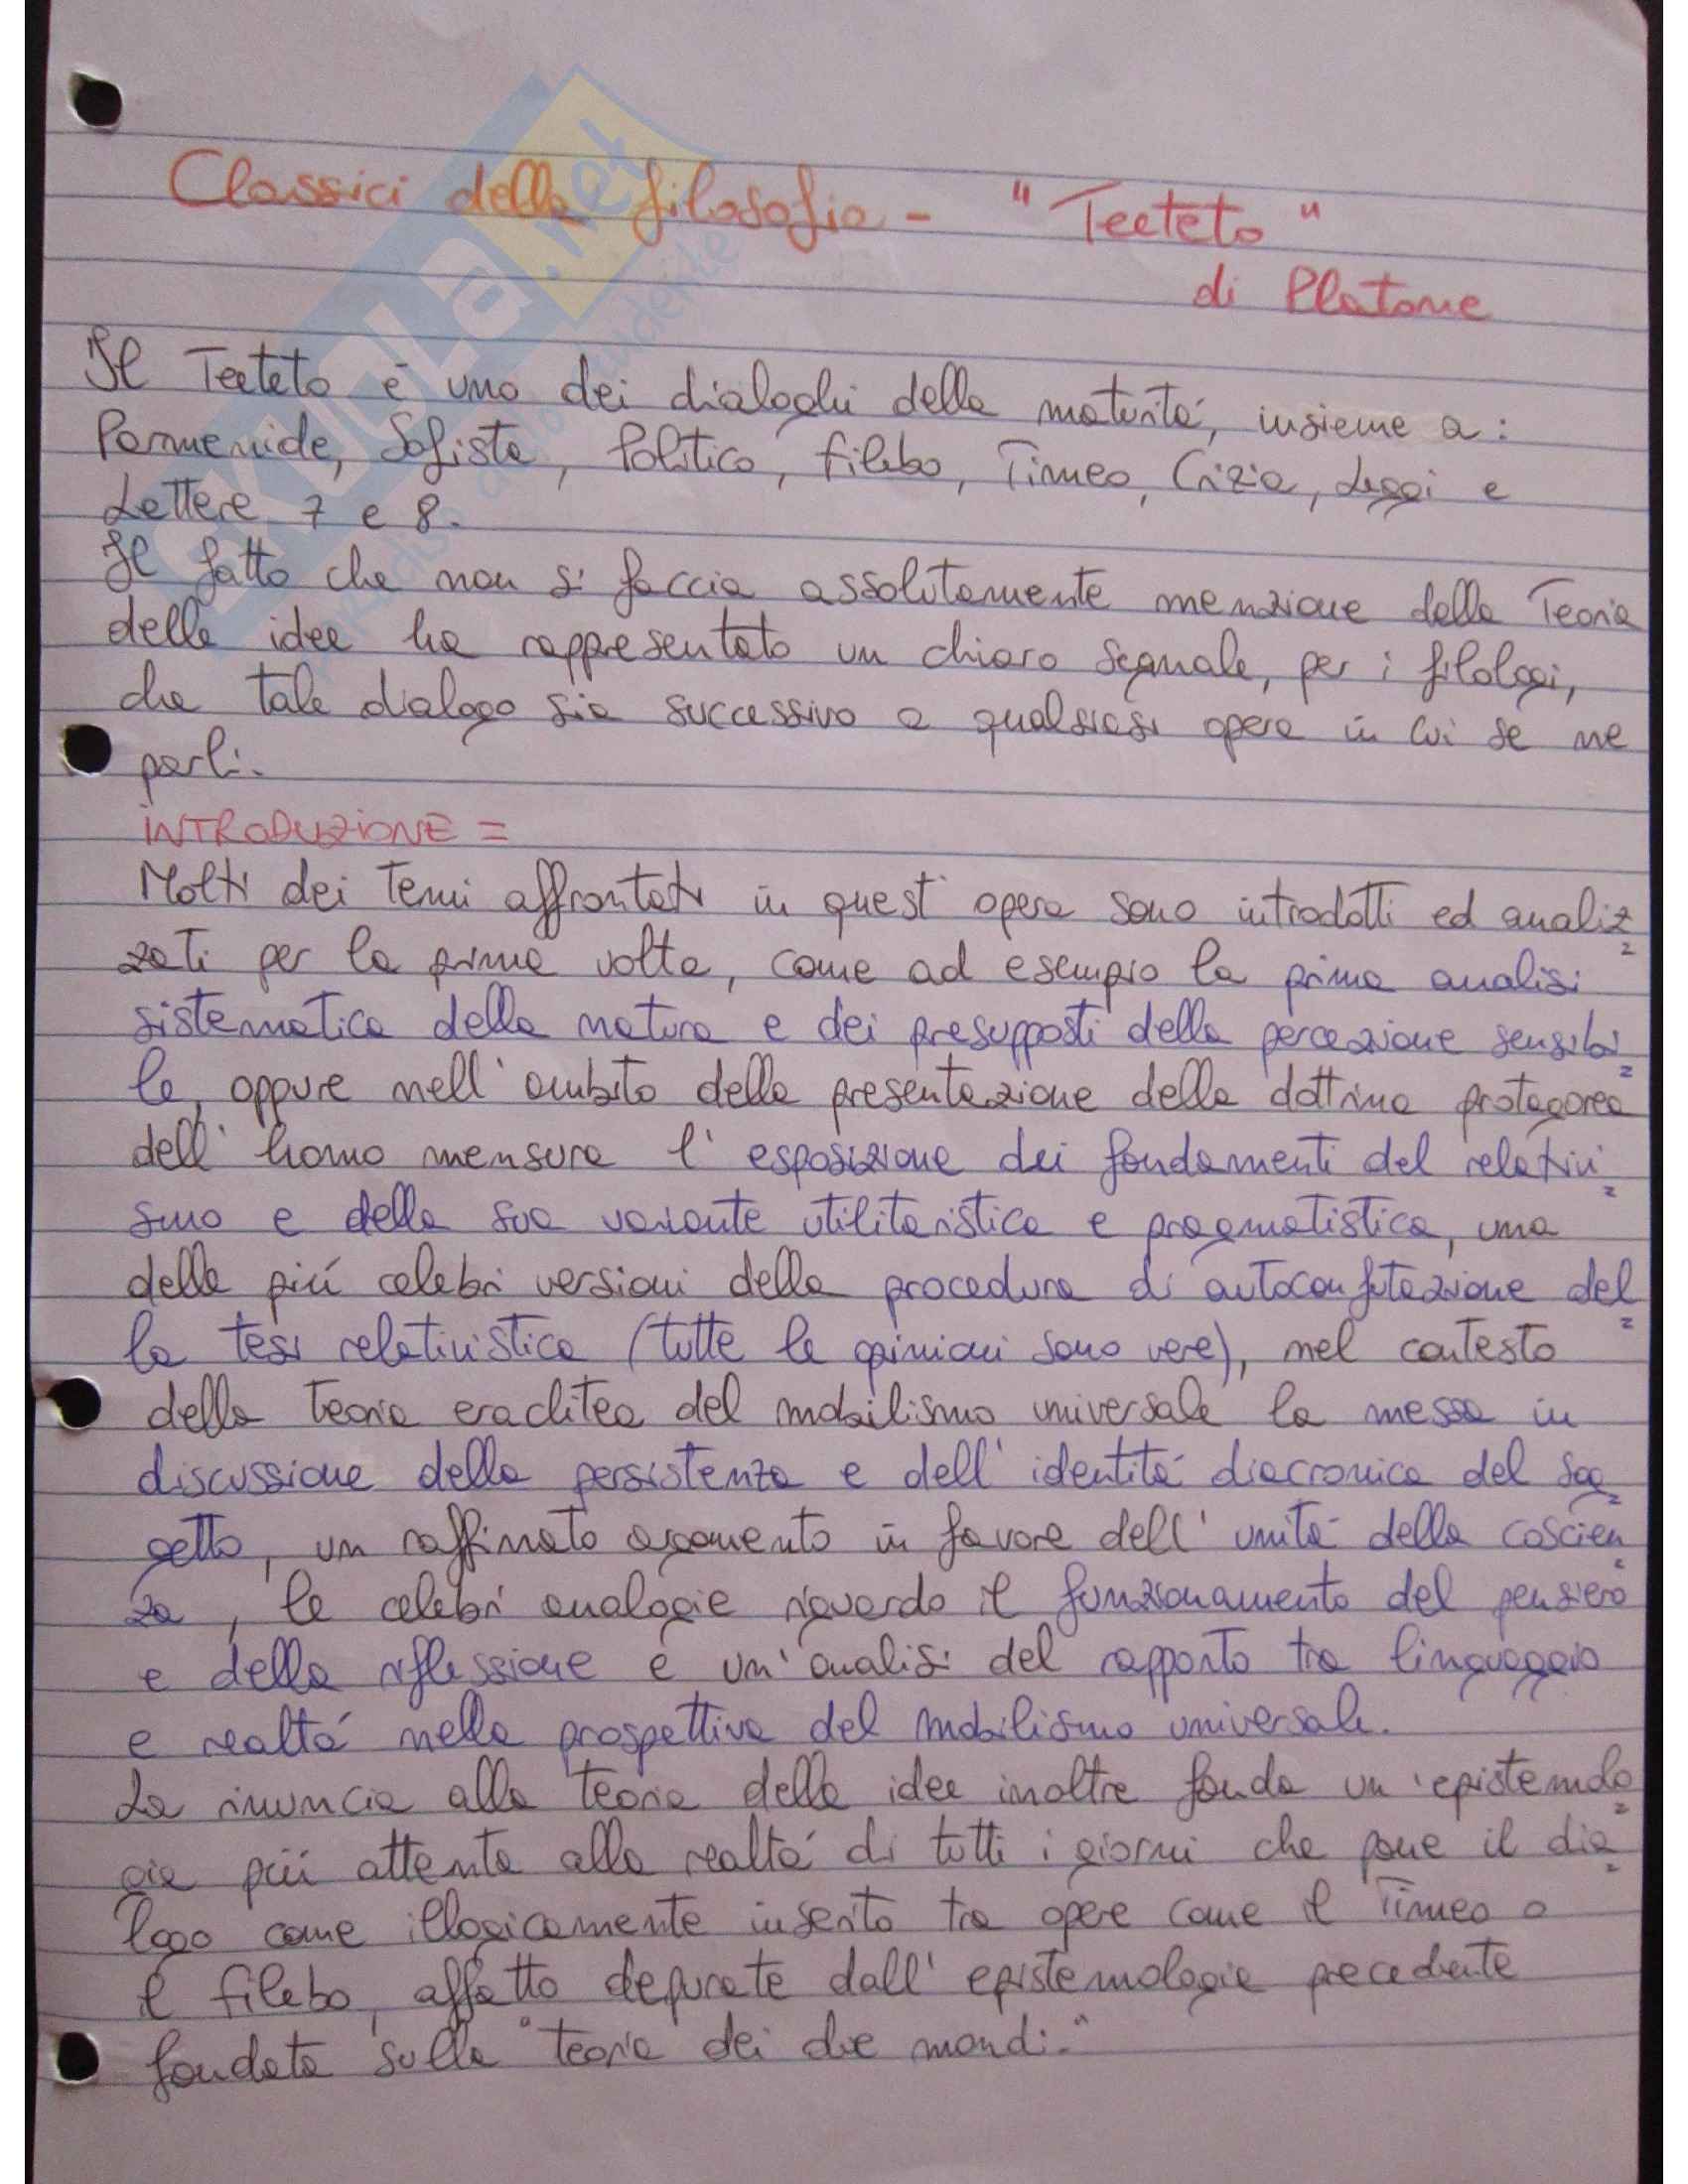 Classici della filosofia - "Teeteto"
di Platone
Il Teeteto è uno dei dialoghi della maturità, insieme a:
Parmenide, Sofista, Politico, Filebo, Timeo, Crizia, Leggi e
Lettere 7 e 8.
Il fatto che non si faccia assolutamente menzione della Teoria
delle idee ha rappresentato un chiaro segnale, per i filologi,
che tale dialogo sia successivo a qualsiasi opera in cui se ne
parli.
INTRODUZIONE =
Molti dei temi affrontati in quest'opera sono introdotti ed analiz=
zati per la prima volta, come ad esempio la prima analisi
sistematica della natura e dei presupposti della percezione sensibi=
le, oppure nell'ambito della presentazione della dottrina protagorea
dell'homo mensura l'esposizione dei fondamenti del relativi=
smo e della sua variante utilitaristica e pragmatistica, una
delle più celebri versioni della procedura di autoconfutazione del=
la tesi relativistica (tutte le opinioni sono vere), nel contesto
della teoria eraclitea del mobilismo universale la messa in
discussione della persistenza e dell'identità diacronica del sog=
getto, un raffinato argomento in favore dell'unità della coscien=
za, le celebri analogie riguardo il funzionamento del pensiero
e della riflessione e un'analisi del rapporto tra linguaggio
e realtà nella prospettiva del mobilismo universale.
La rinuncia alla teoria delle idee inoltre fonda un'epistemolo=
gia più attenta alla realtà di tutti i giorni che pone il dia=
logo come illogicamente inserito tra opere come il Timeo o
il Filebo, affatto depurate dall'epistemologia precedente
fondata sulla "teoria dei due mondi."
SKUOLA.net